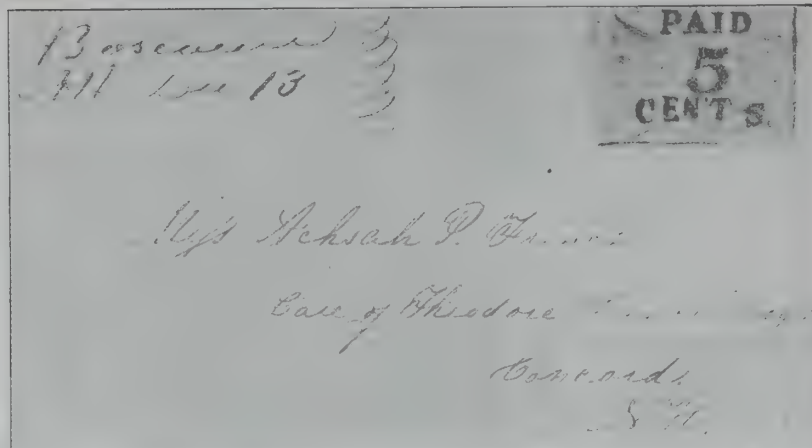 Boscawen
NH Dec 13
PAID
5
CENTS.
Miss Achsah P.
Care of Theodore
Concord
N.H.